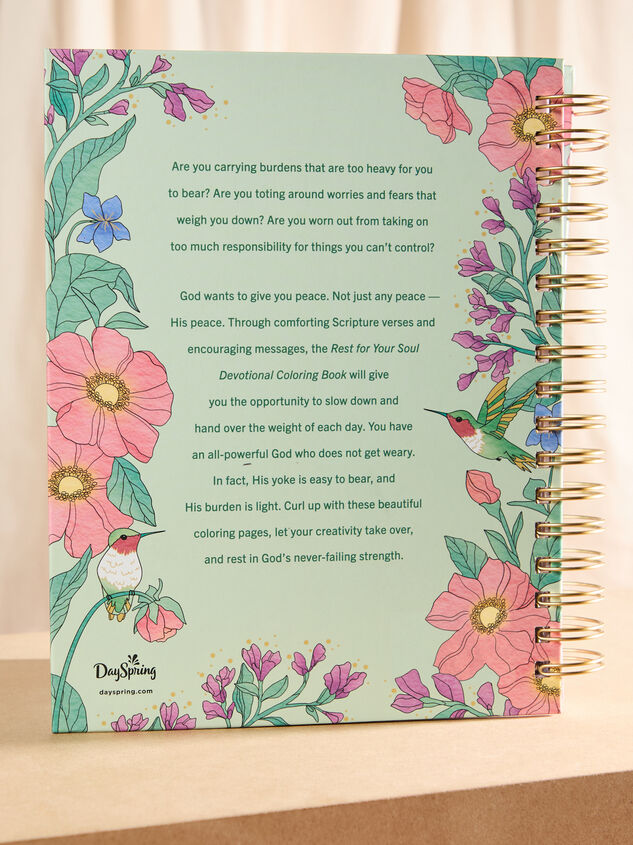 Are you carrying burdens that are too heavy for you
to bear? Are you toting around worries and fears that
weigh you down? Are you worn out from taking on
too much responsibility for things you can’t control?
God wants to give you peace. Not just any peace —
His peace. Through comforting Scripture verses and
encouraging messages, the Rest for Your Soul
Devotional Coloring Book will give
you the opportunity to slow down and
hand over the weight of each day. You have
an all-powerful God who does not get weary.
In fact, His yoke is easy to bear, and
His burden is light. Curl up with these beautiful
coloring pages, let your creativity take over,
and rest in God’s never-failing strength.
DaySpring
dayspring.com